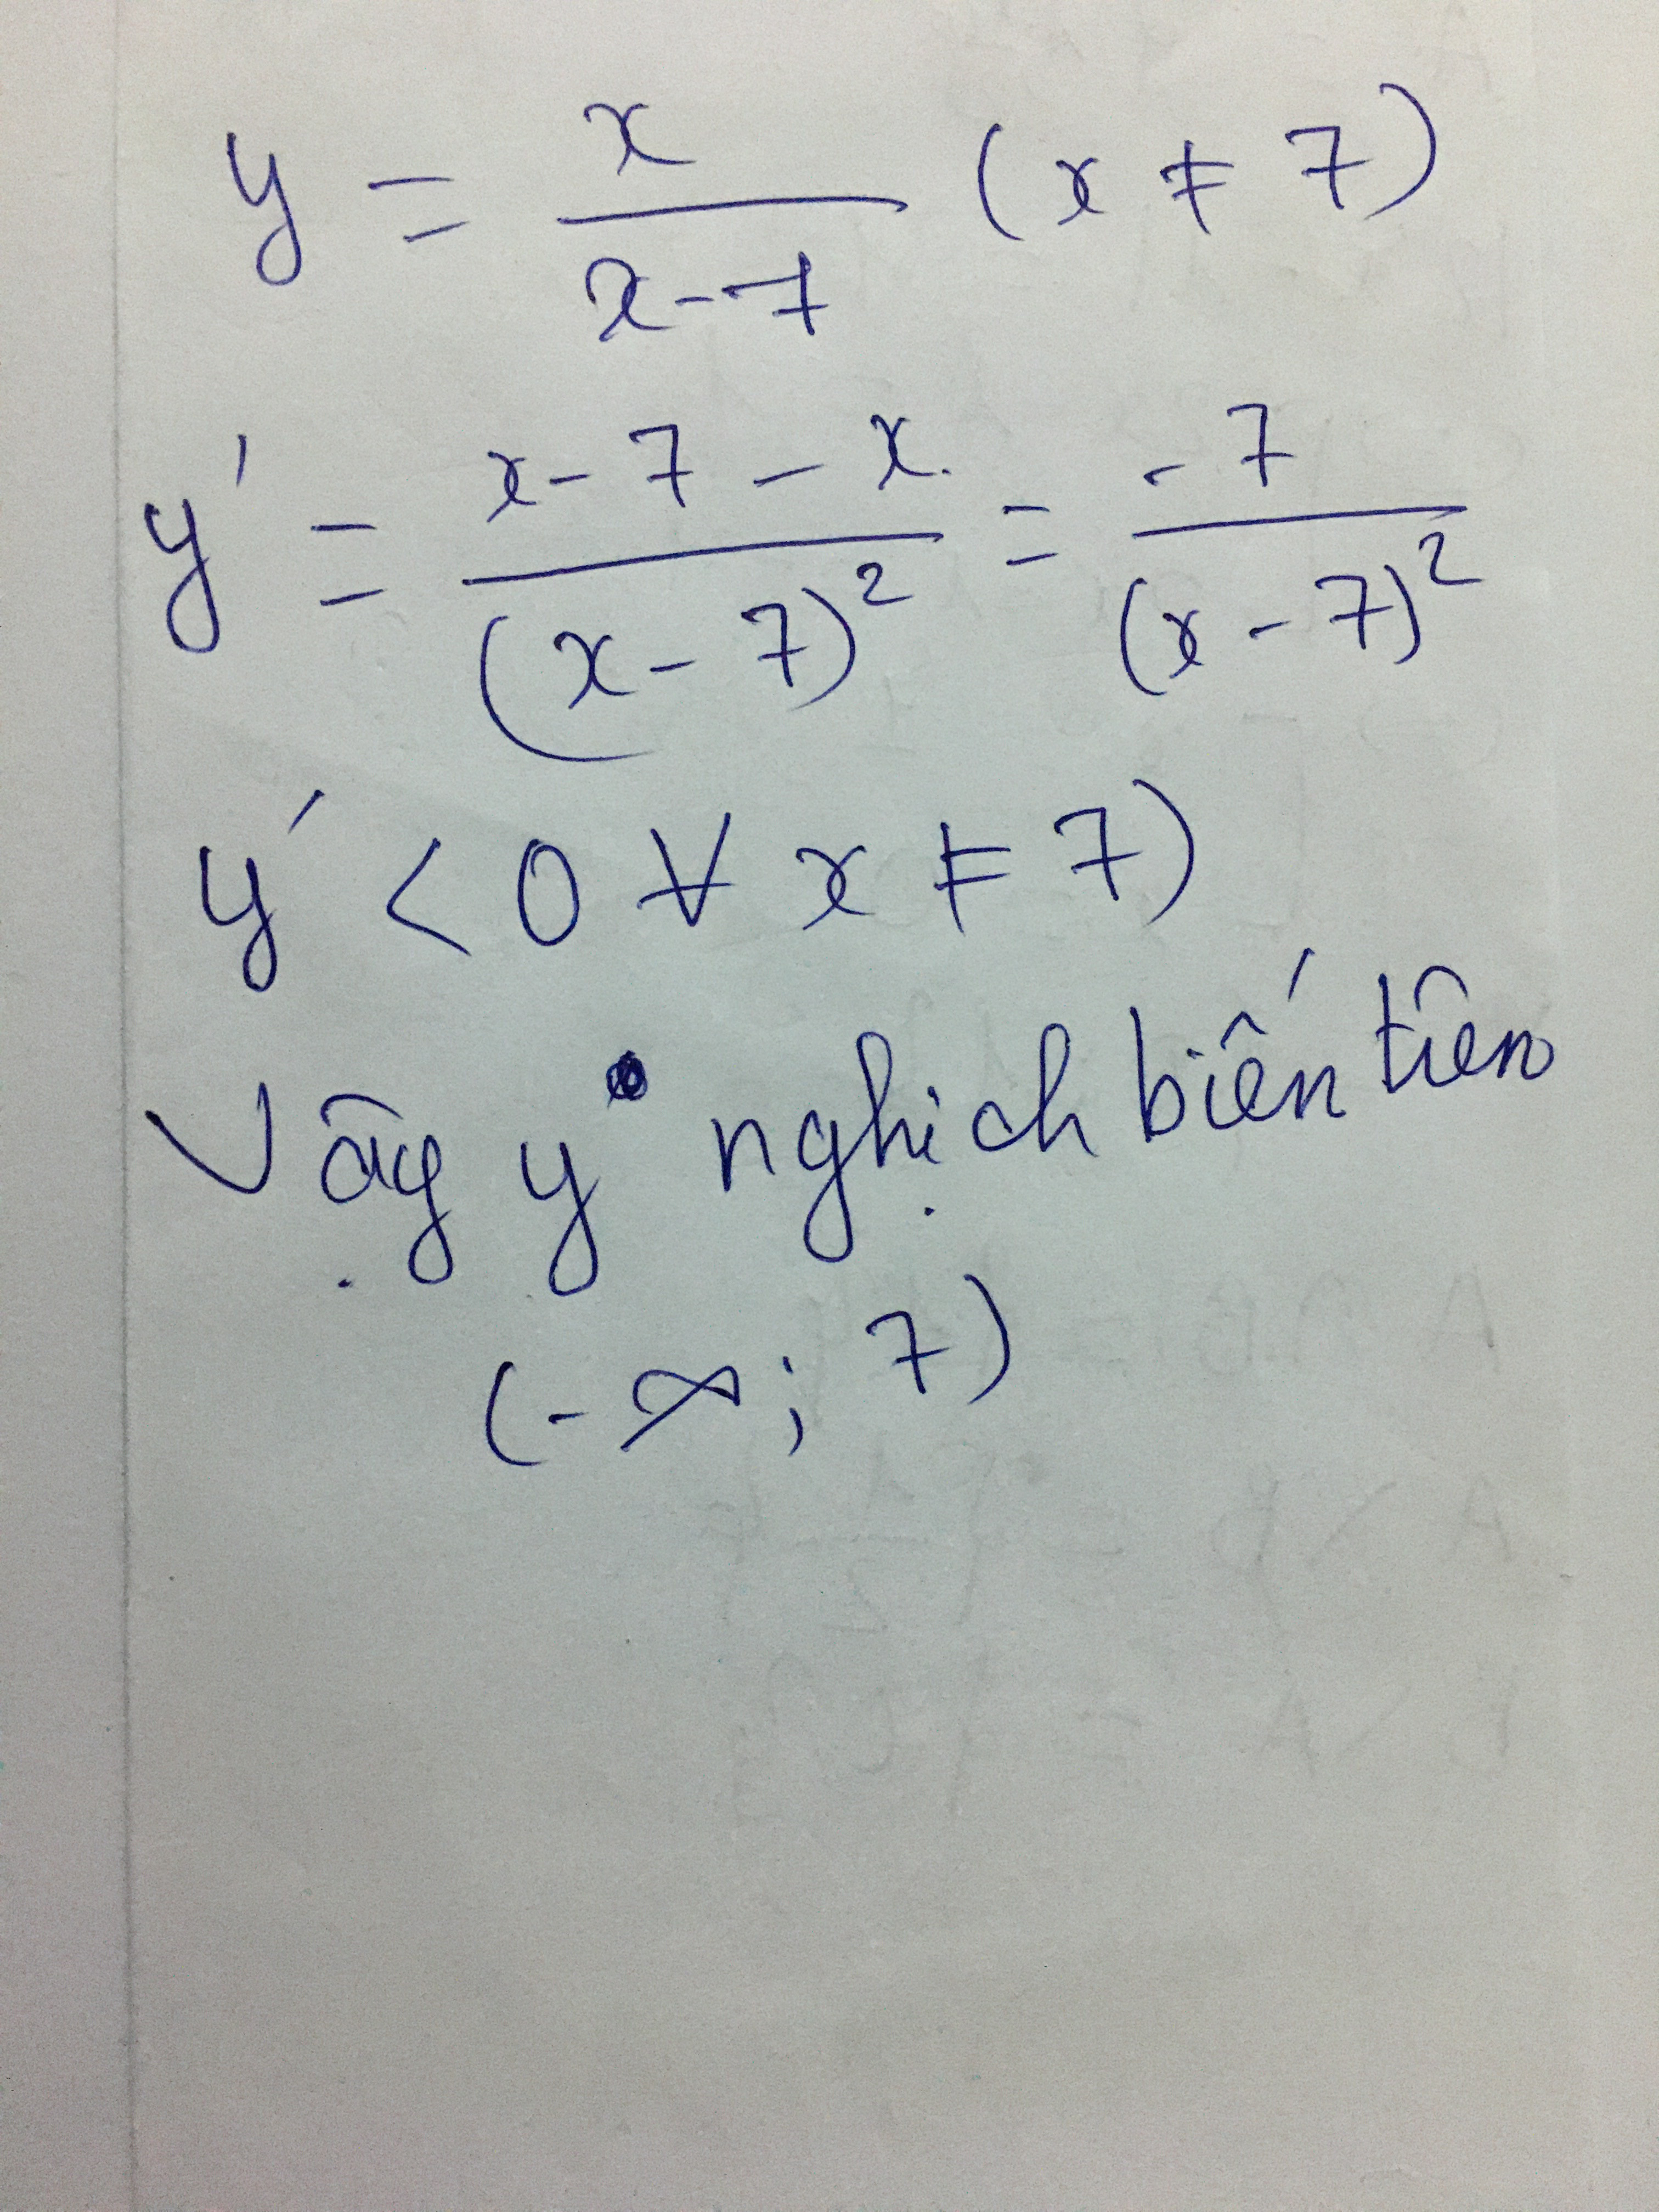 y = x / (x-7) (x ≠ 7)
y' = (x-7-x.) / (x-7)² = -7 / (x-7)²
y' < 0 ∀ x ≠ 7)
Vậy y nghịch biến trên
(-∞; 7)